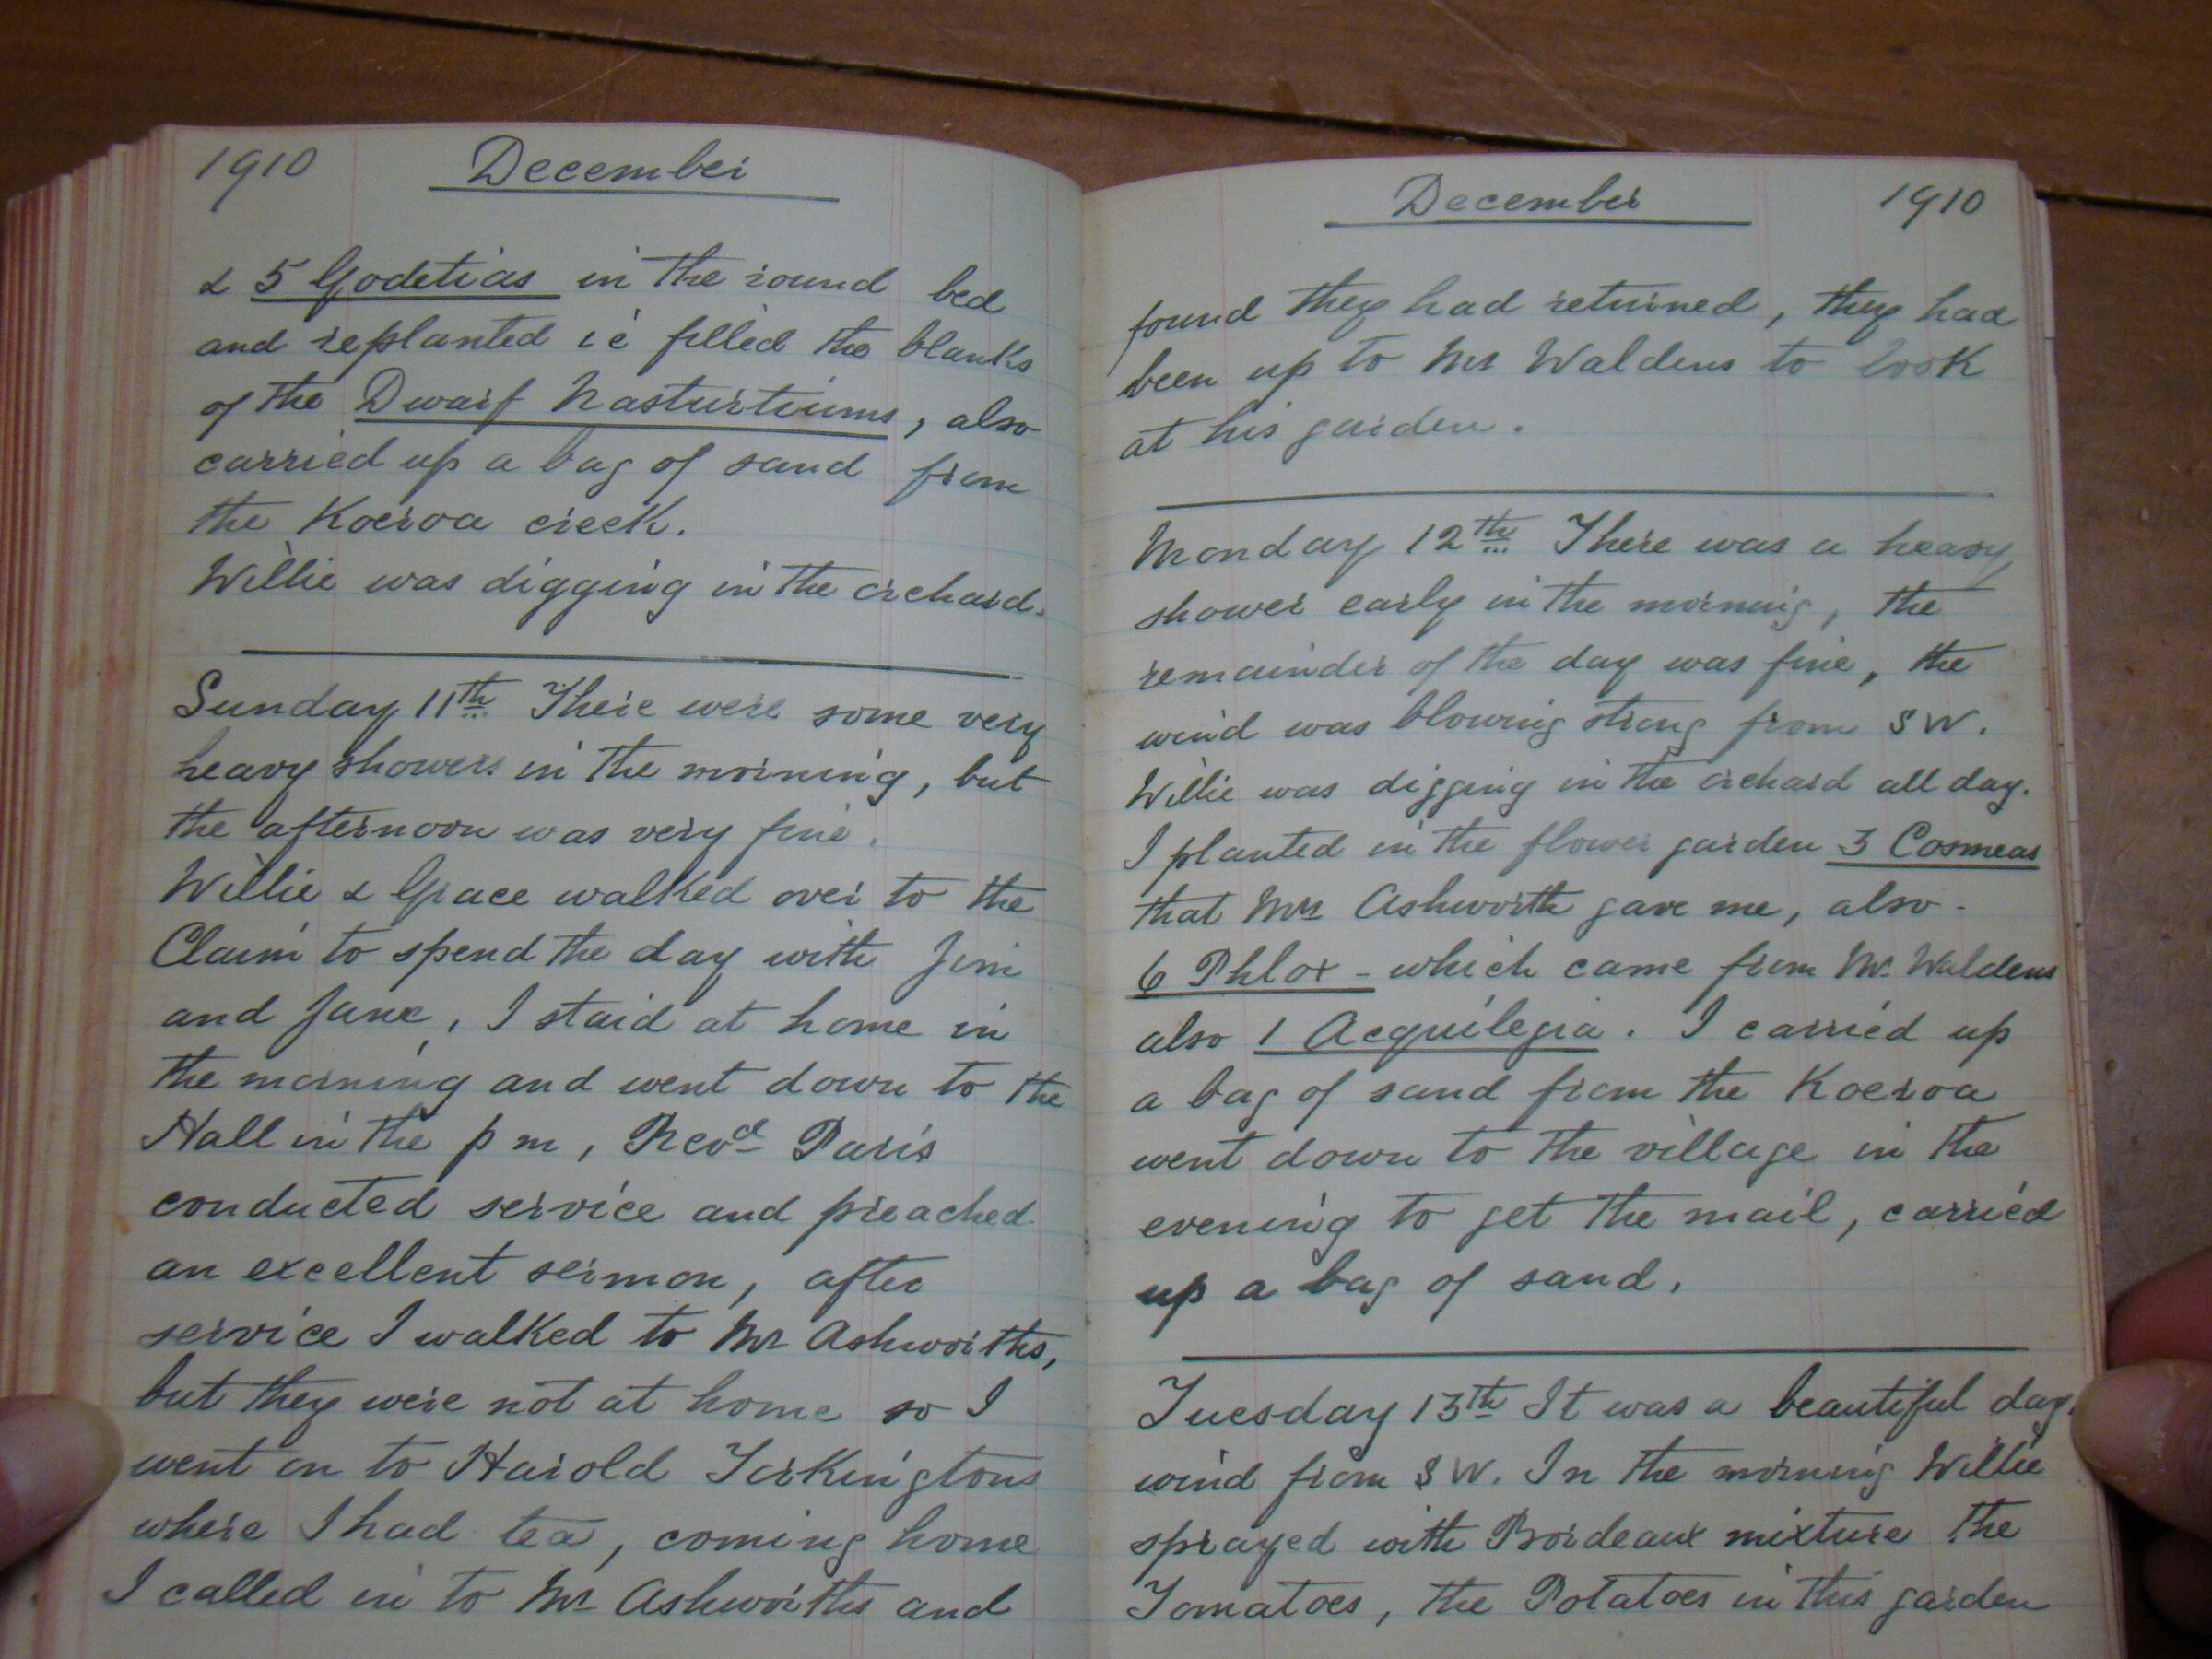 1910 December
& 5 Godetias in the round bed
and replanted ie filled the blanks
of the Dwarf Nasturtiums, also
carried up a bag of sand from
the Koeroa creek.
Willie was digging in the orchard.
Sunday 11th There were some very
heavy showers in the morning, but
the afternoon was very fine.
Willie & Grace walked over to the
Claim to spend the day with Jim
and Jane, I staid at home in
the morning and went down to the
Hall in the p m, Revd Paris
conducted service and preached
an excellent sermon, after
service I walked to Mr Ashworths,
but they were not at home so I
went on to Harold Torkingtons
where I had tea, coming home
I called in to Mr Ashworths and
December 1910
found they had returned, they had
been up to Mr Waldens to look
at his garden.
Monday 12th There was a heavy
shower early in the morning, the
remainder of the day was fine, the
wind was blowing strong from SW.
Willie was digging in the orchard all day.
I planted in the flower garden 3 Cosmeas
that Mrs Ashworth gave me, also -
6 Phlox - which came from Mr Waldens
also 1 Acquilegia. I carried up
a bag of sand from the Koeroa
went down to the village in the
evening to get the mail, carried
up a bag of sand.
Tuesday 13th It was a beautiful day.
wind from SW. In the morning Willie
sprayed with Bordeaux mixture the
Tomatoes, the Potatoes in this garden